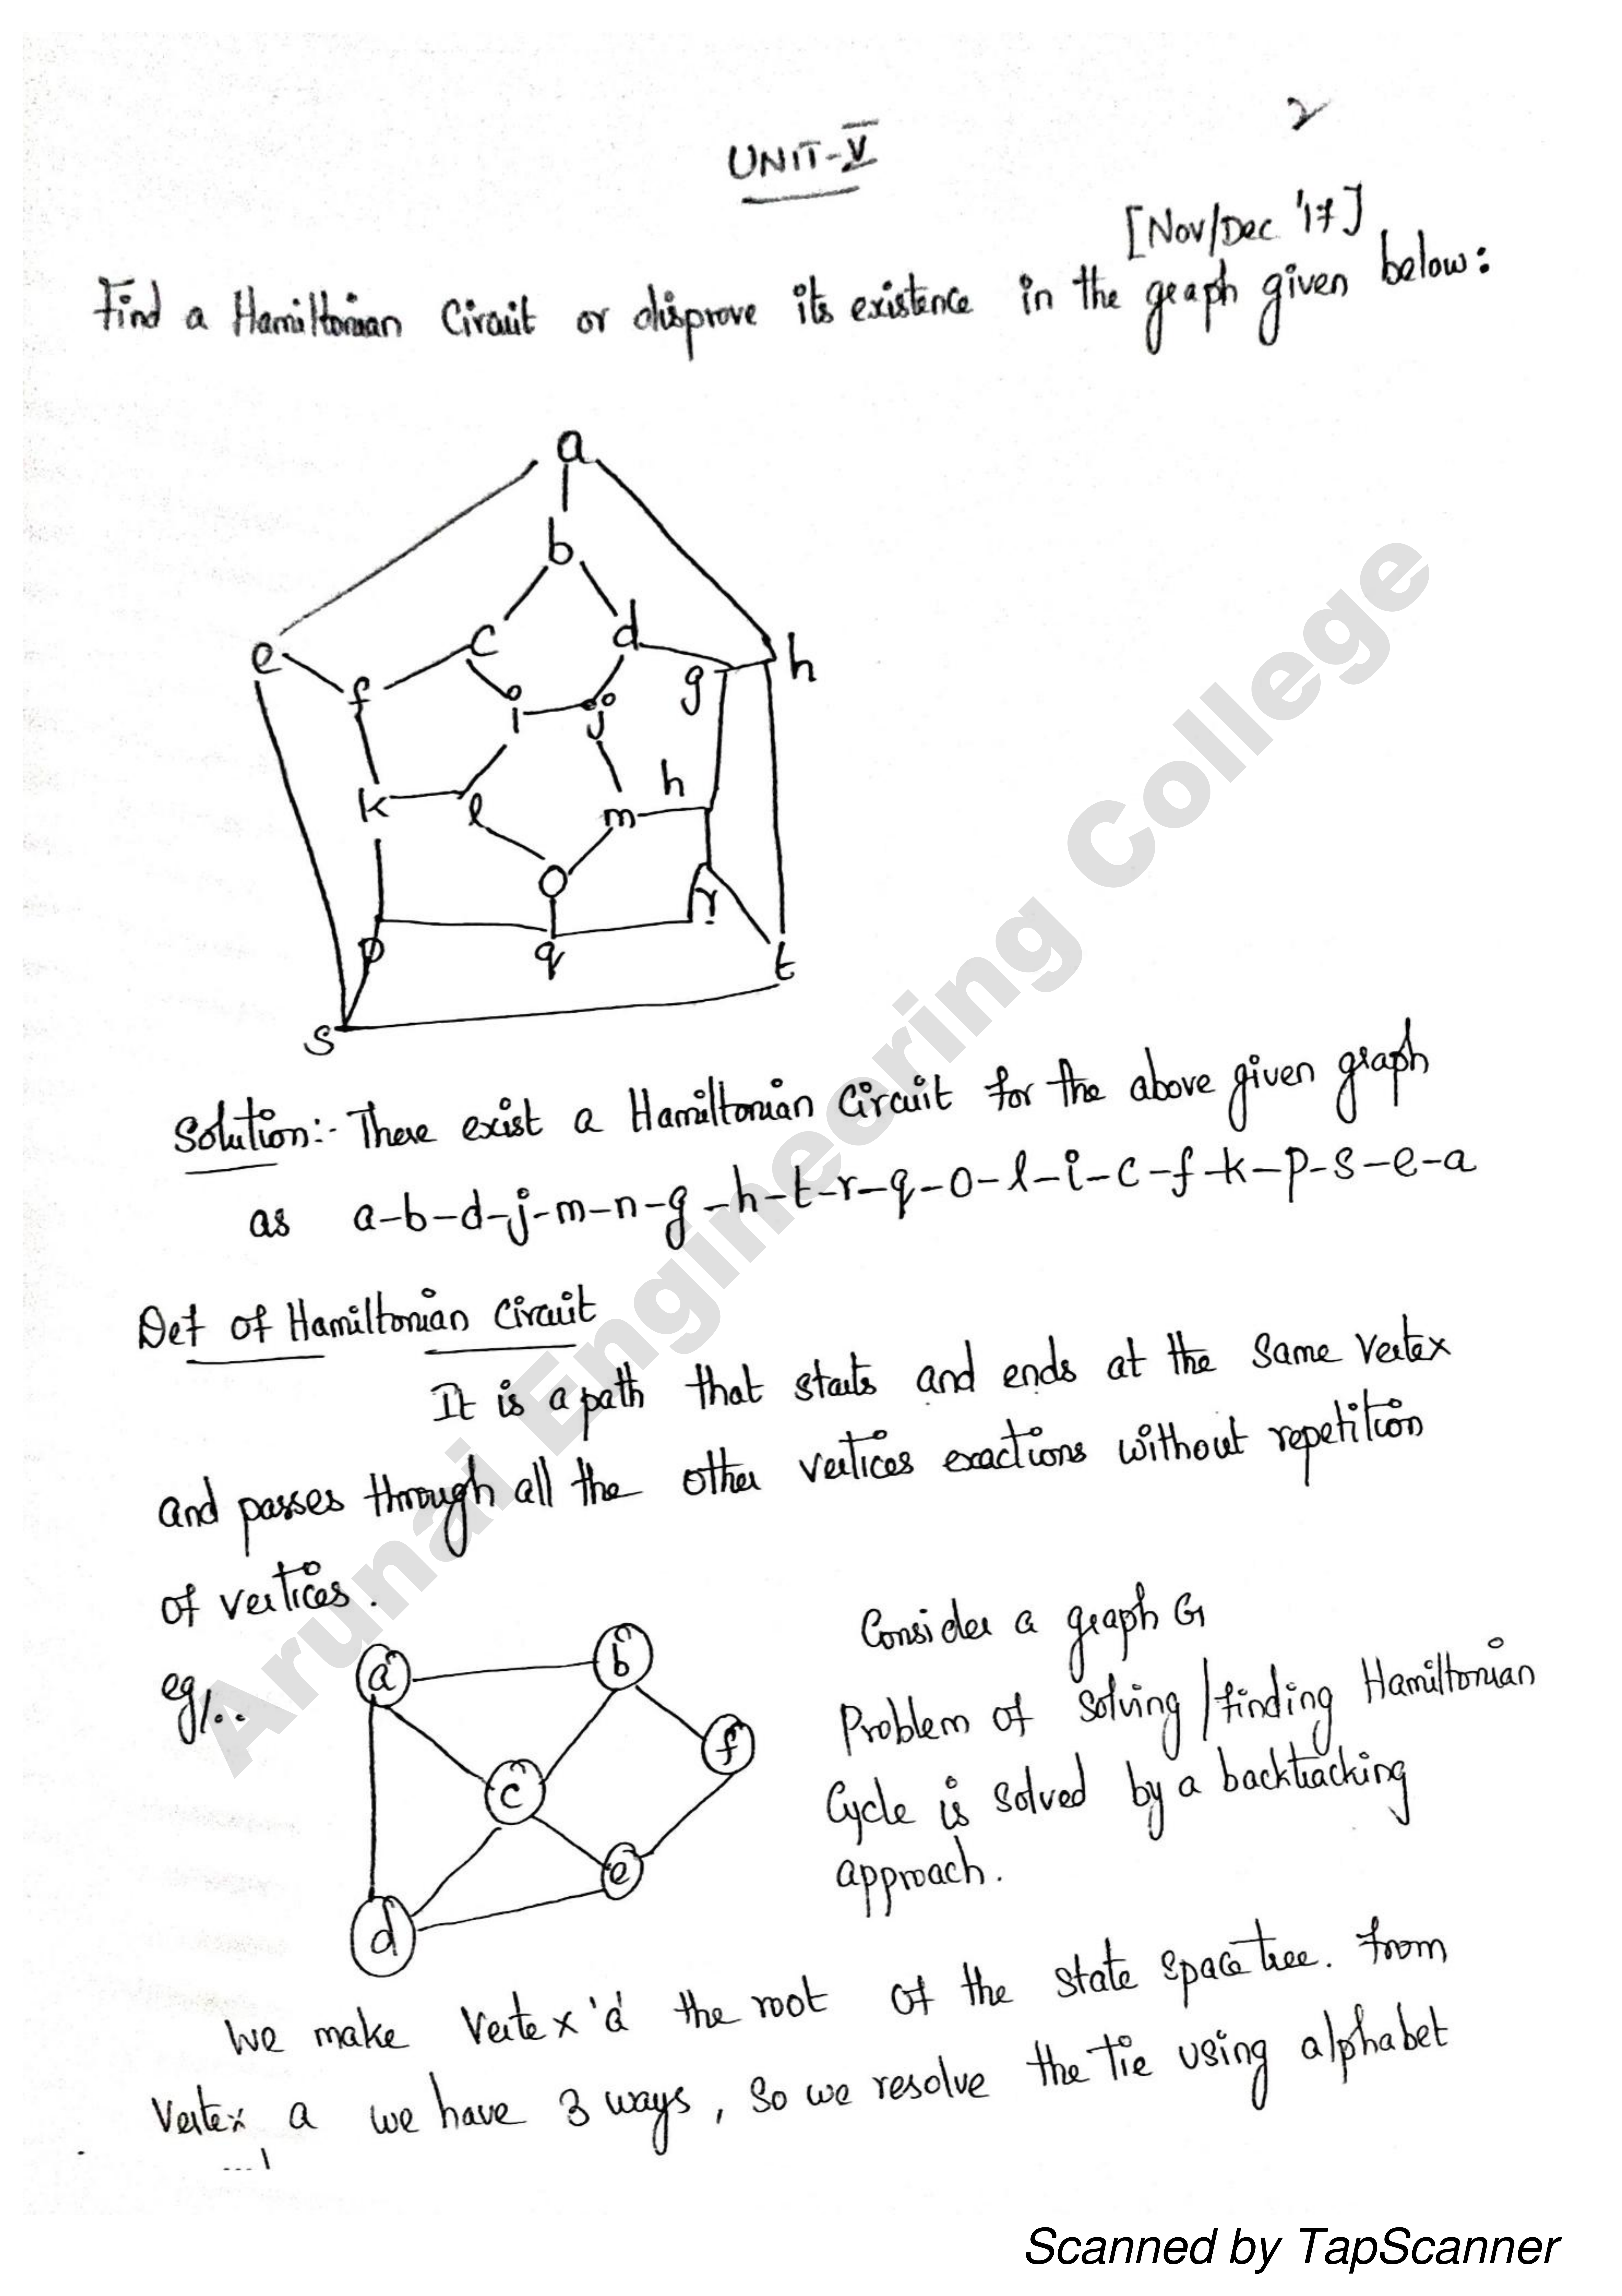 2
UNIT-V
[Nov/Dec '17]
Find a Hamiltonian Circuit or disprove its existence in the graph given below:
a
b
c d
e f g h
i j
k l m h
o
p q r t
s
Solution:- There exist a Hamiltonian Circuit for the above given graph
as a-b-d-j-m-n-g-h-t-r-q-o-l-i-c-f-k-p-s-e-a
Def of Hamiltonian Circuit
It is a path that starts and ends at the same vertex
and passes through all the other vertices exactions without repetition
of vertices.
eg/:.
a b
f
c
e
d
Consider a graph G
Problem of solving/finding Hamiltonian
Cycle is solved by a backtracking
approach.
We make Vertex 'a' the root of the state space tree. From
Vertex a we have 3 ways, so we resolve the tie using alphabet
Arunai Engineering College
Scanned by TapScanner